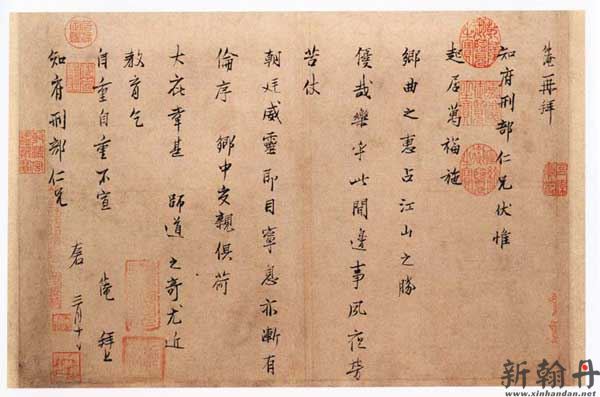 淹再拜
知府刑部仁兄伏惟
起居萬福施
鄉曲之惠占江山之勝
優哉樂乎此間邊事夙夜勞
苦仗
朝廷威靈即目寧息亦漸有
倫序 鄉中交親俱荷
大庇幸甚 師道之奇尤近
教育乞
自重自重不宣 淹 拜上
知府刑部仁兄 三月十日
新翰丹
www.xinhandan.net